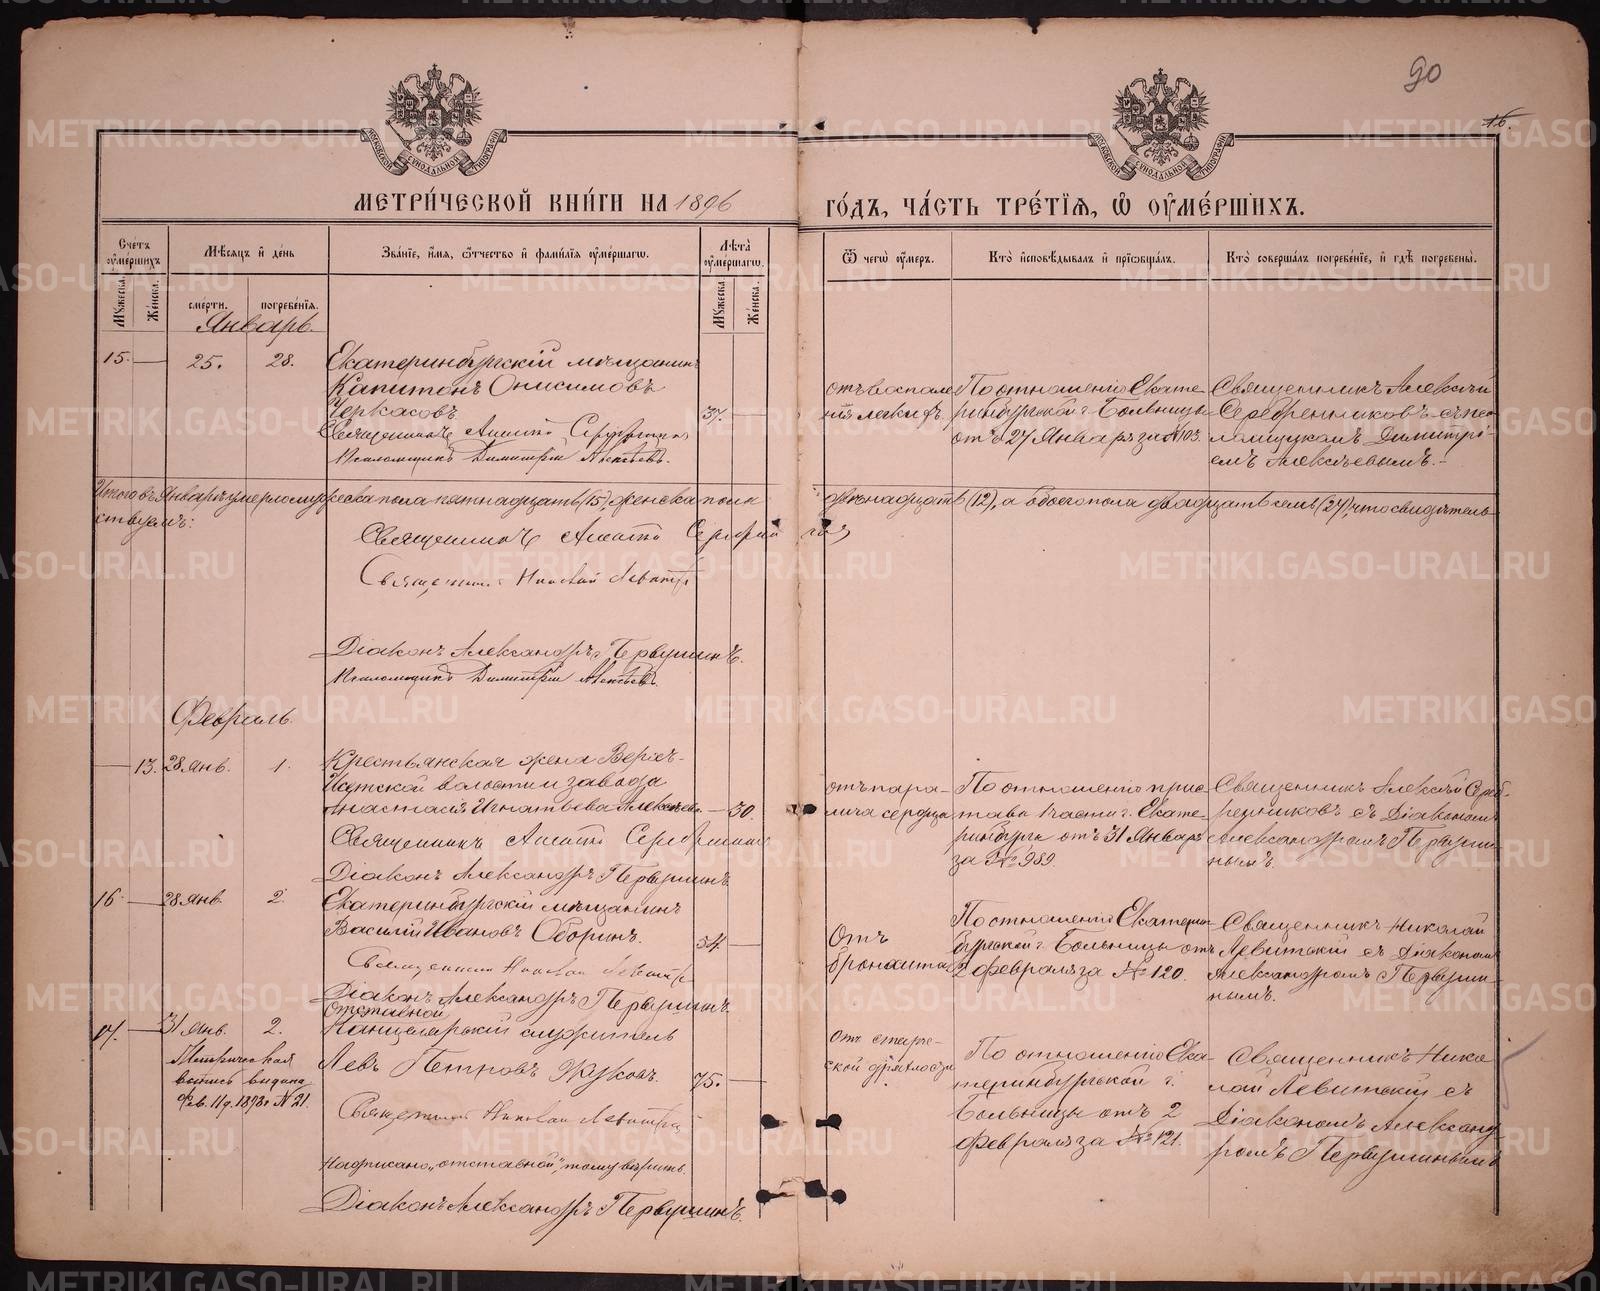 90
16.
МОСКОВСКОЙ СѴНОДАЛЬНОЙ ТИПОГРАФІИ
МОСКОВСКОЙ СѴНОДАЛЬНОЙ ТИПОГРАФІИ
МЕТРИ́ЧЕСКОЙ КНИ́ГИ НА 1896
ГО́ДЪ, ЧА́СТЬ ТРЕ́ТІѦ, Ѿ ОУМЕ́РШИХЪ.
Сче́тъ оуме́ршихъ.
Мужеска.
Же́нска.
Мѣ́сяцъ и де́нь
сме́рти.
погребе́нія.
Зва́ніе, и́мя, о́тчество и фами́лія оуме́ршагѡ.
Лѣта̀ оуме́ршагѡ.
Мужеска.
Же́нска.
Ѿ чегѡ̀ оу́меръ.
Кто̀ исповѣ́дывалъ и пріобща́лъ.
Кто̀ соверша́лъ погребе́ніе, и гдѣ̀ погребены̀.
Январь.
15. — 25. 28.
Екатеринбургскій мѣщанинъ
Капитонъ Онисимовъ
Черкасовъ
37. —
Священникъ
Псаломщикъ Димитрій Алексѣевъ.
отъ воспале
нія легкихъ.
По отношенію Екате
ринбургской г. Больницы
отъ 27 Января за № 103.
Священникъ Алексѣй
Серебренниковъ съ пса
ломщикомъ Димитрі-
емъ Алексѣевымъ.
Итого въ Январѣ умерло мужеска пола пятнадцать (15), женска пола
двѣнадцать (12), а обоего пола двадцать семь (27), что свидѣтель-
ствуемъ:
Священникъ
Священникъ Николай Левитскій
Діаконъ Александръ Первушинъ.
Псаломщикъ Димитрій Алексѣевъ.
Февраль.
— 13. 28 Янв. 1.
Крестьянская жена Верхъ-
Исетской волости и завода
Анастасія Игнатьева Алексѣева
— 30.
Священникъ
Діаконъ Александръ Первушинъ.
отъ пара-
лича сердца
По отношенію прис
тава 1 части г. Екате
ринбурга отъ 31 Января
за № 989
Священникъ Алексѣй Сереб-
ренниковъ съ Діакономъ
Александромъ Первуши-
нымъ.
16. — 28 Янв. 2.
Екатеринбургскій мѣщанинъ
Василій Ивановъ Оборинъ.
54. —
Священникъ Николай Левитскій
Діаконъ Александръ Первушинъ.
Отъ
бронхита
По отношенію Екатерин-
бургской г. Больницы отъ
2 февраля за № 120.
Священникъ Николай
Левитскій съ Діакономъ
Александромъ Первуши-
нымъ.
17. — 31 Янв. 2.
Метрическая
выпись выдана
Фев. 11 д. 1898 г. № 21.
Отставной
Канцелярскій служитель
Левъ Петровъ Жуковъ.
75. —
Священникъ Николай Левитскій
Надписано „отставной“, тому вѣрить.
Діаконъ Александръ Первушинъ.
отъ старче-
ской дряхлости
По отношенію Ека-
теринбургской г.
Больницы отъ 2
февраля за № 121.
Священникъ Нико
лай Левитскій съ
Діакономъ Александ
ромъ Первушинымъ
METRIKI.GASO-URAL.RU